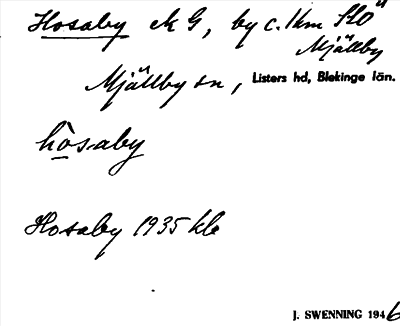 Hosaby ek G, by c. 1 km SSO
Mjällby
Mjällby sn, Listers hd, Blekinge län.
hòsaby
Hosaby 1935 kk
J. SWENNING 1946